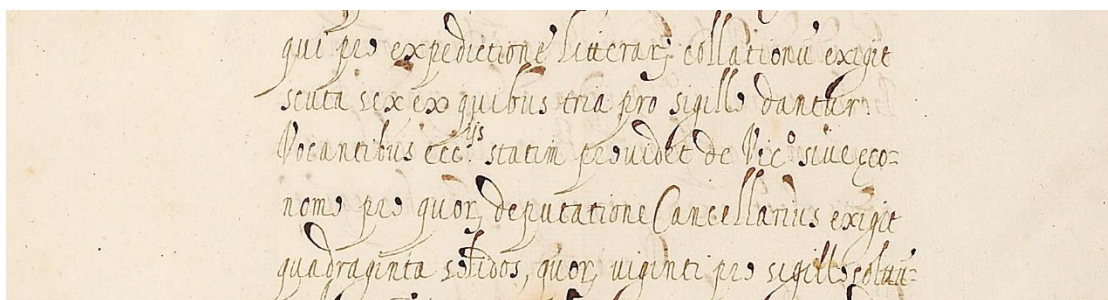 qui pro expeditione litterarũ collationũ exigit
scuta sex ex quibus tria pro sigillo dantur.
Vocantibus eccijs statim providet de Vico sive eco=
nomo pro quorũ deputatione Cancellarius exigit
quadraginta solidos, quorũ viginti pro sigillo solvũ=